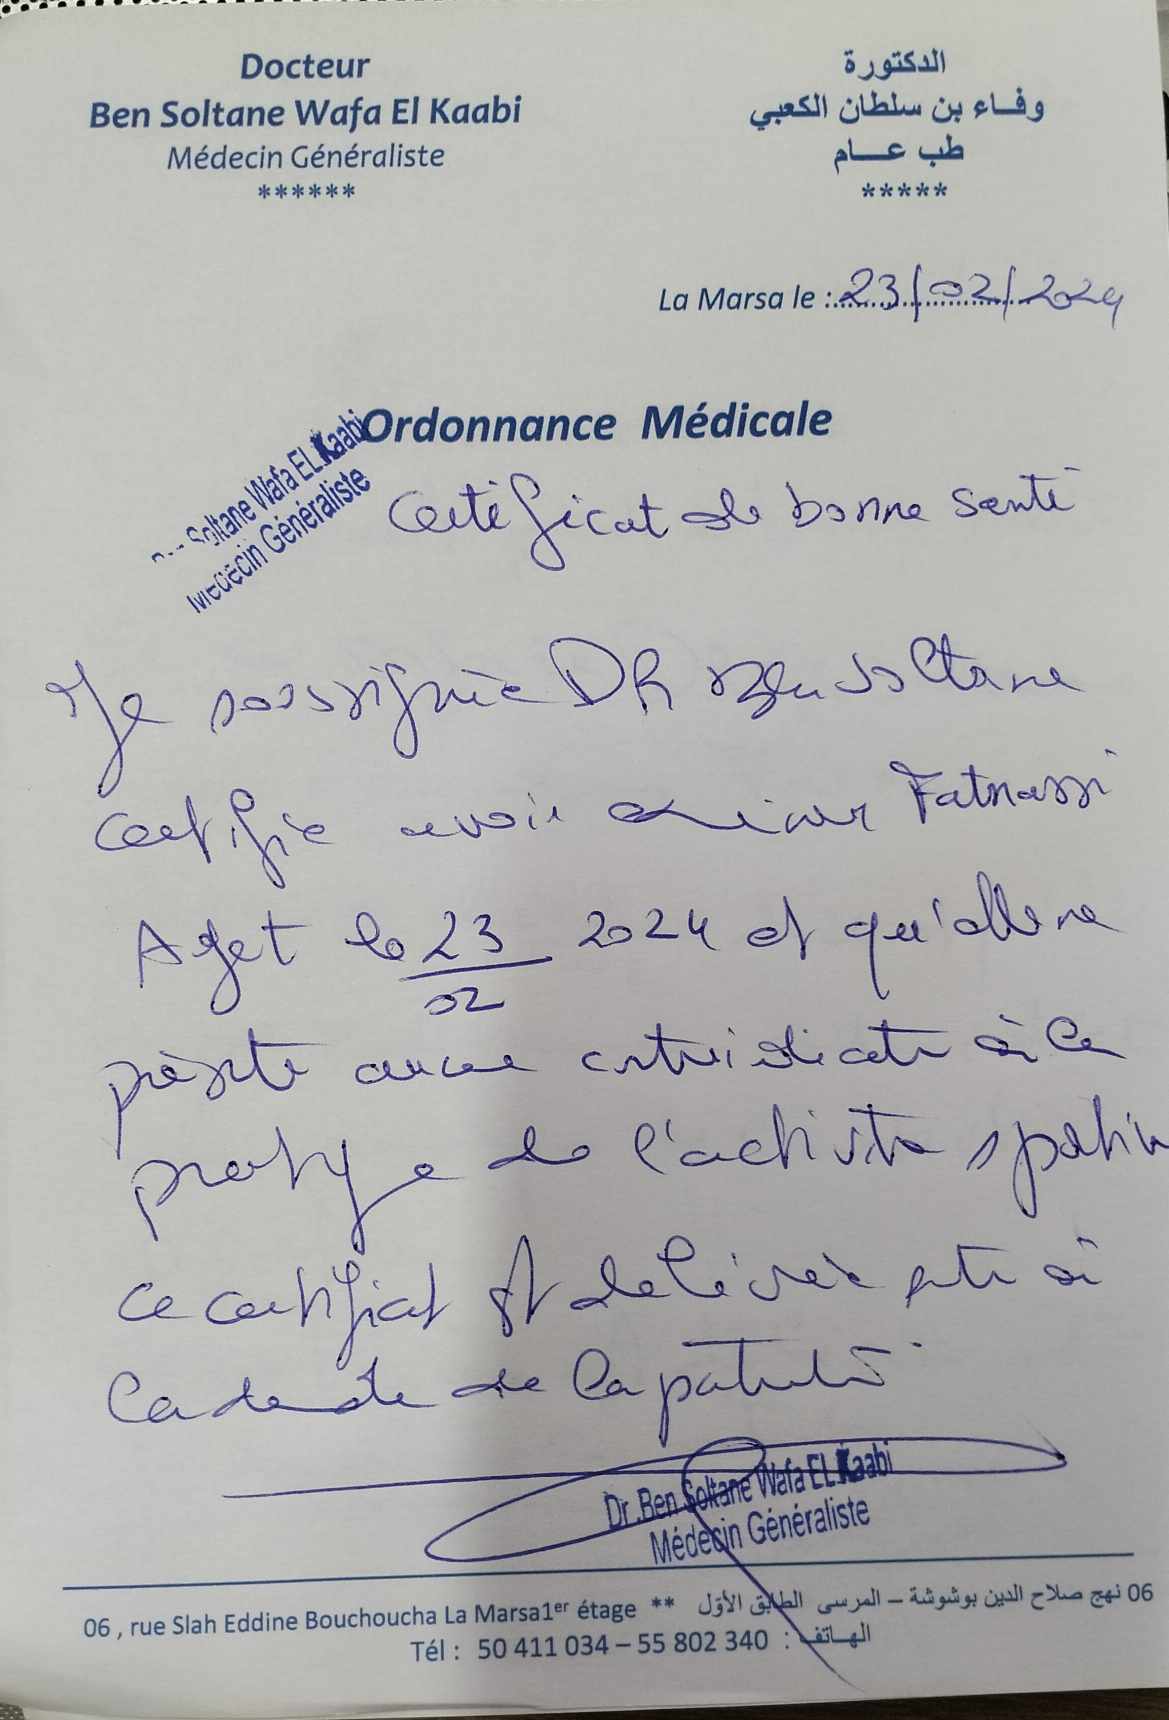 Docteur
Ben Soltane Wafa El Kaabi
Médecin Généraliste
******
الدكتورة
وفاء بن سلطان الكعبي
طب عام
*****
La Marsa le : 23/02/2024
Ordonnance Médicale
Soltane Wafa EL Kaabi
Médecin Généraliste
Certificat de bonne santé
Je soussignée DR Ben Soltane
certifie avoir Fatnassi
le 23/02 2024 et qu'elle ne
présente aucune à la
pratique de l'activité
ce certificat est délivré à
la de la
Dr.Ben Soltane Wafa EL Kaabi
Médecin Généraliste
06 , rue Slah Eddine Bouchoucha La Marsa1er étage ** 06 نهج صلاح الدين بوشوشة – المرسى الطابق الأوّل
Tél : 50 411 034 – 55 802 340 : الهاتف